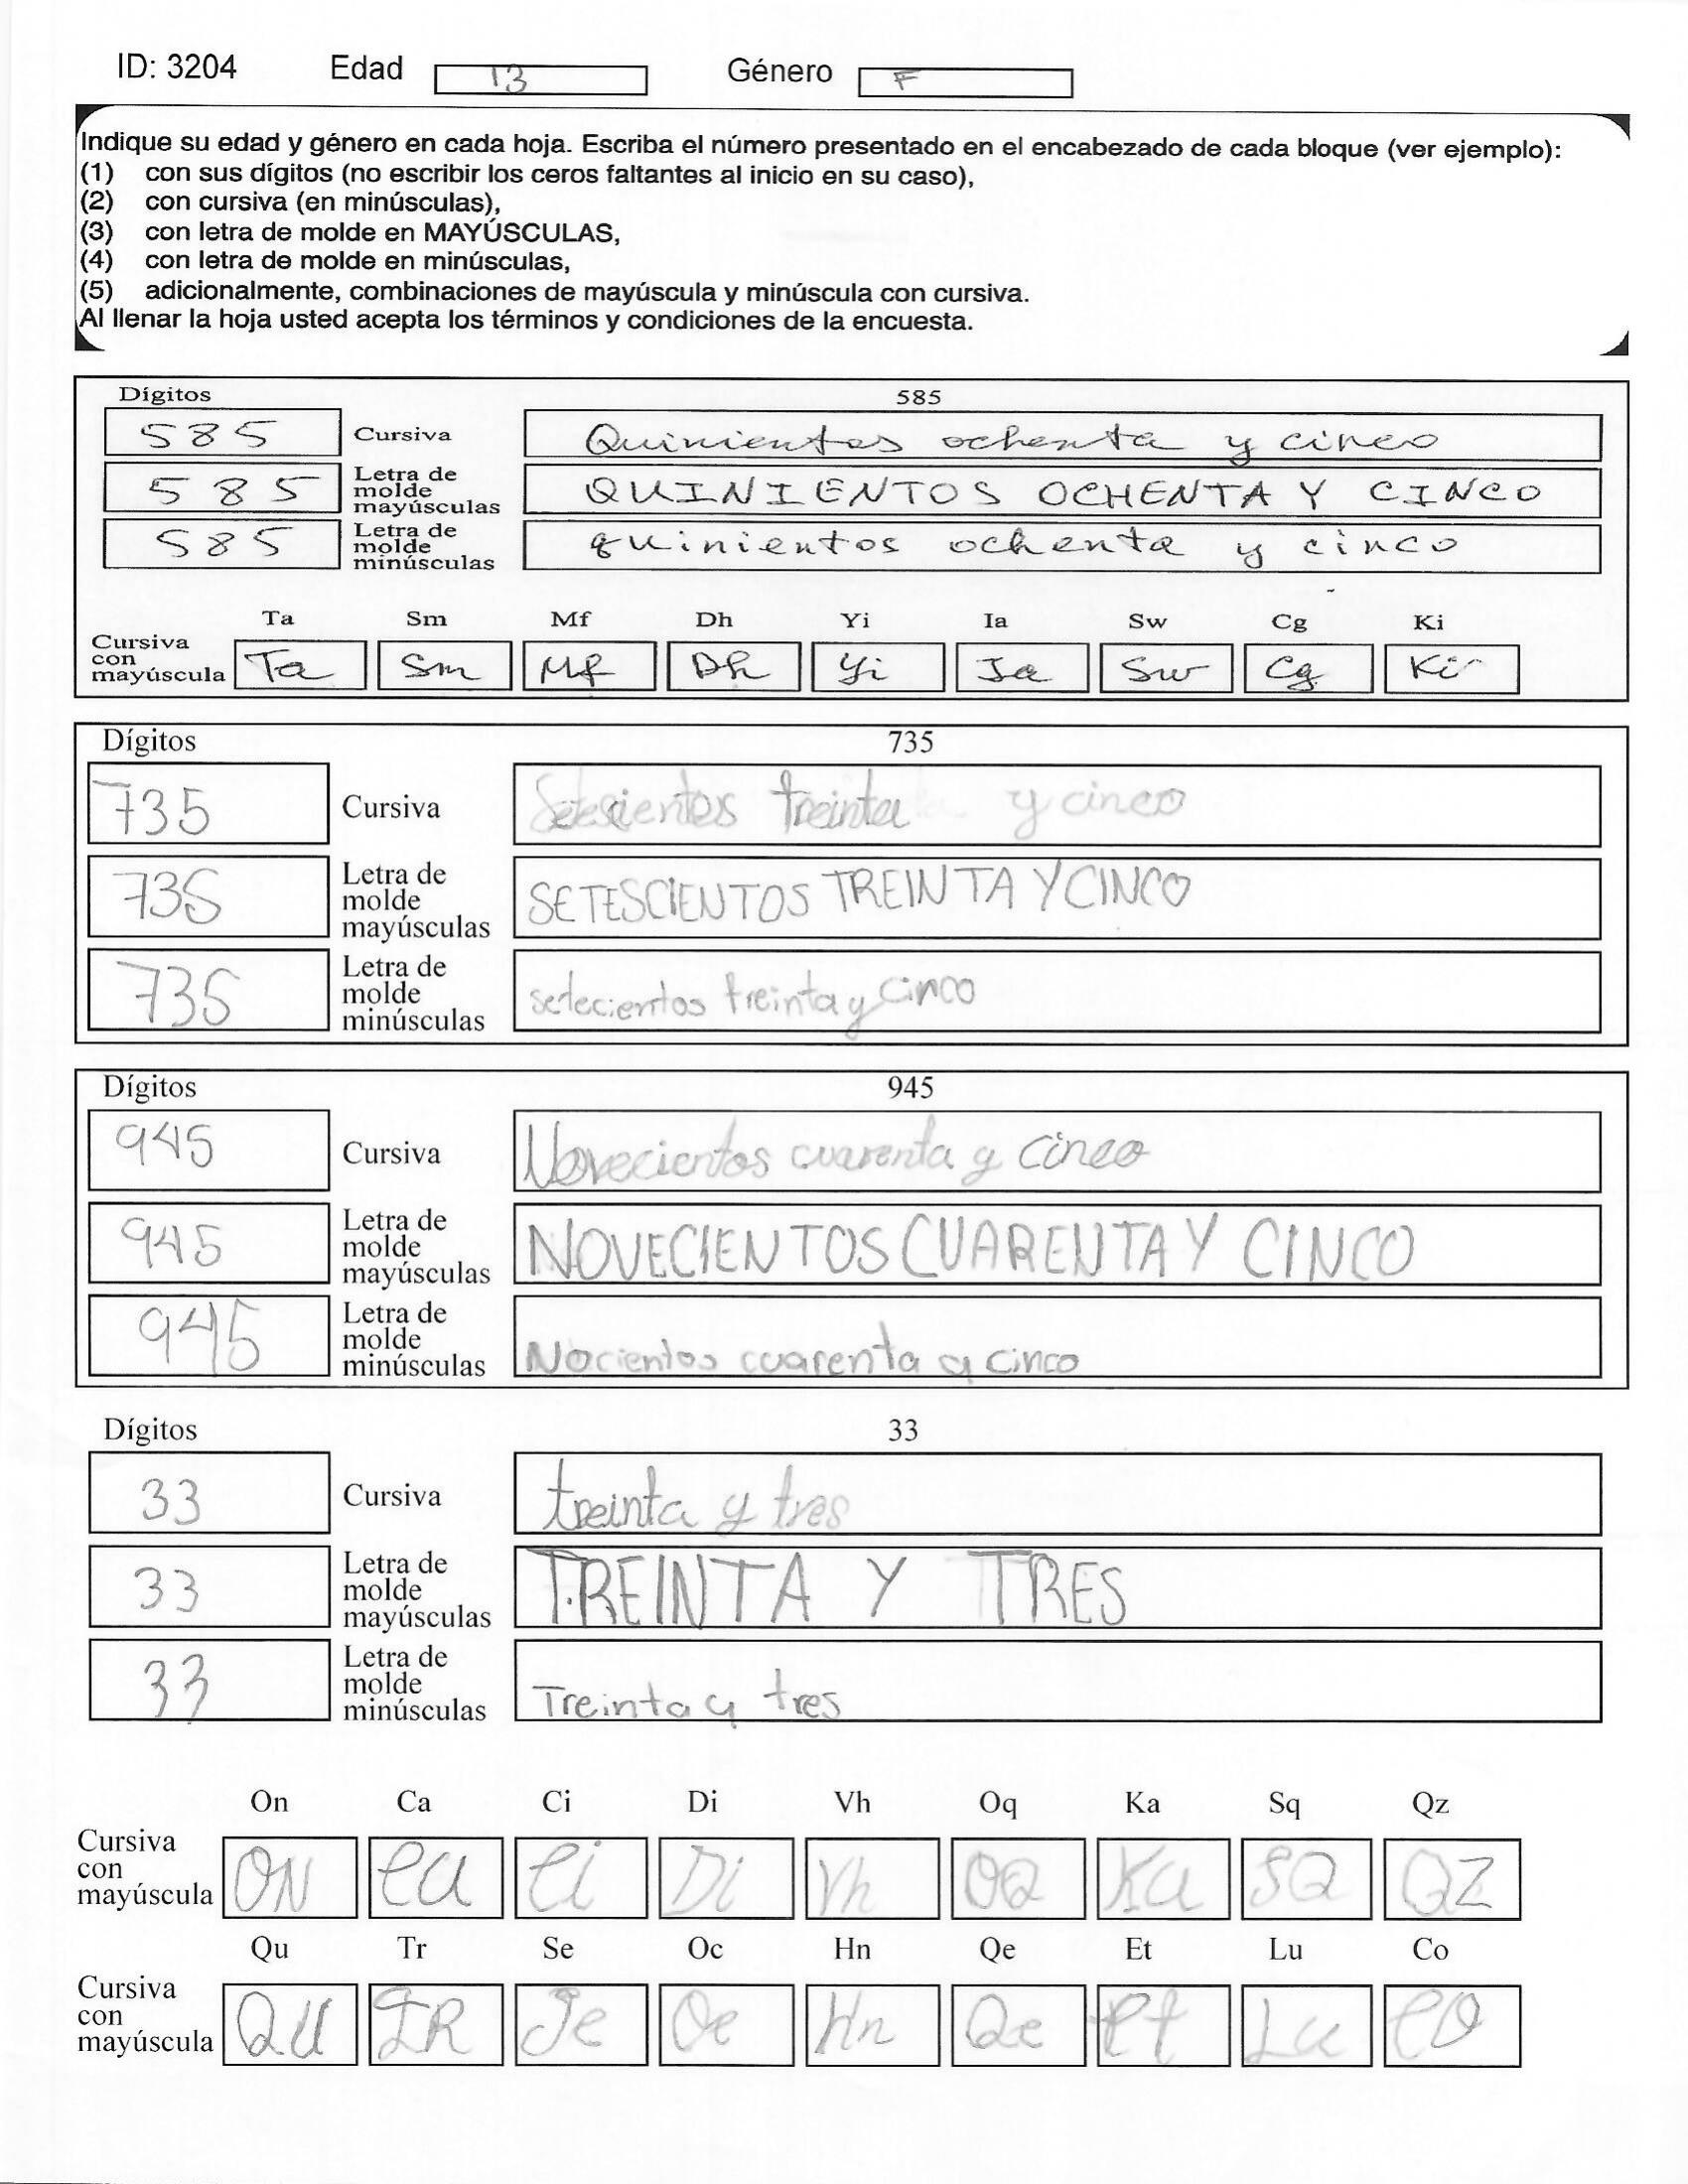 ID: 3204 Edad 13 Género F
Indique su edad y género en cada hoja. Escriba el número presentado en el encabezado de cada bloque (ver ejemplo):
(1) con sus dígitos (no escribir los ceros faltantes al inicio en su caso),
(2) con cursiva (en minúsculas),
(3) con letra de molde en MAYÚSCULAS,
(4) con letra de molde en minúsculas,
(5) adicionalmente, combinaciones de mayúscula y minúscula con cursiva.
Al llenar la hoja usted acepta los términos y condiciones de la encuesta.
Dígitos 585
585 Cursiva Quinientos ochenta y cinco
585 Letra de molde mayúsculas QUINIENTOS OCHENTA Y CINCO
585 Letra de molde minúsculas quinientos ochenta y cinco
Ta Sm Mf Dh Yi Ia Sw Cg Ki
Cursiva con mayúscula Ta Sm Mf Dh Yi Ia Sw Cg Ki
Dígitos 735
735 Cursiva treinta y cinco
735 Letra de molde mayúsculas SETESCIENTOS TREINTA Y CINCO
735 Letra de molde minúsculas setecientos treinta y cinco
Dígitos 945
945 Cursiva Novecientos cuarenta y cinco
945 Letra de molde mayúsculas NOVECIENTOS CUARENTA Y CINCO
945 Letra de molde minúsculas Nocientos cuarenta y cinco
Dígitos 33
33 Cursiva treinta y tres
33 Letra de molde mayúsculas TREINTA Y TRES
33 Letra de molde minúsculas Treinta y tres
On Ca Ci Di Vh Oq Ka Sq Qz
Cursiva con mayúscula ON Ca Ci Di Vh OQ Ka SQ QZ
Qu Tr Se Oc Hn Qe Et Lu Co
Cursiva con mayúscula QU TR Se Oc Hn Qe Et Lu CO